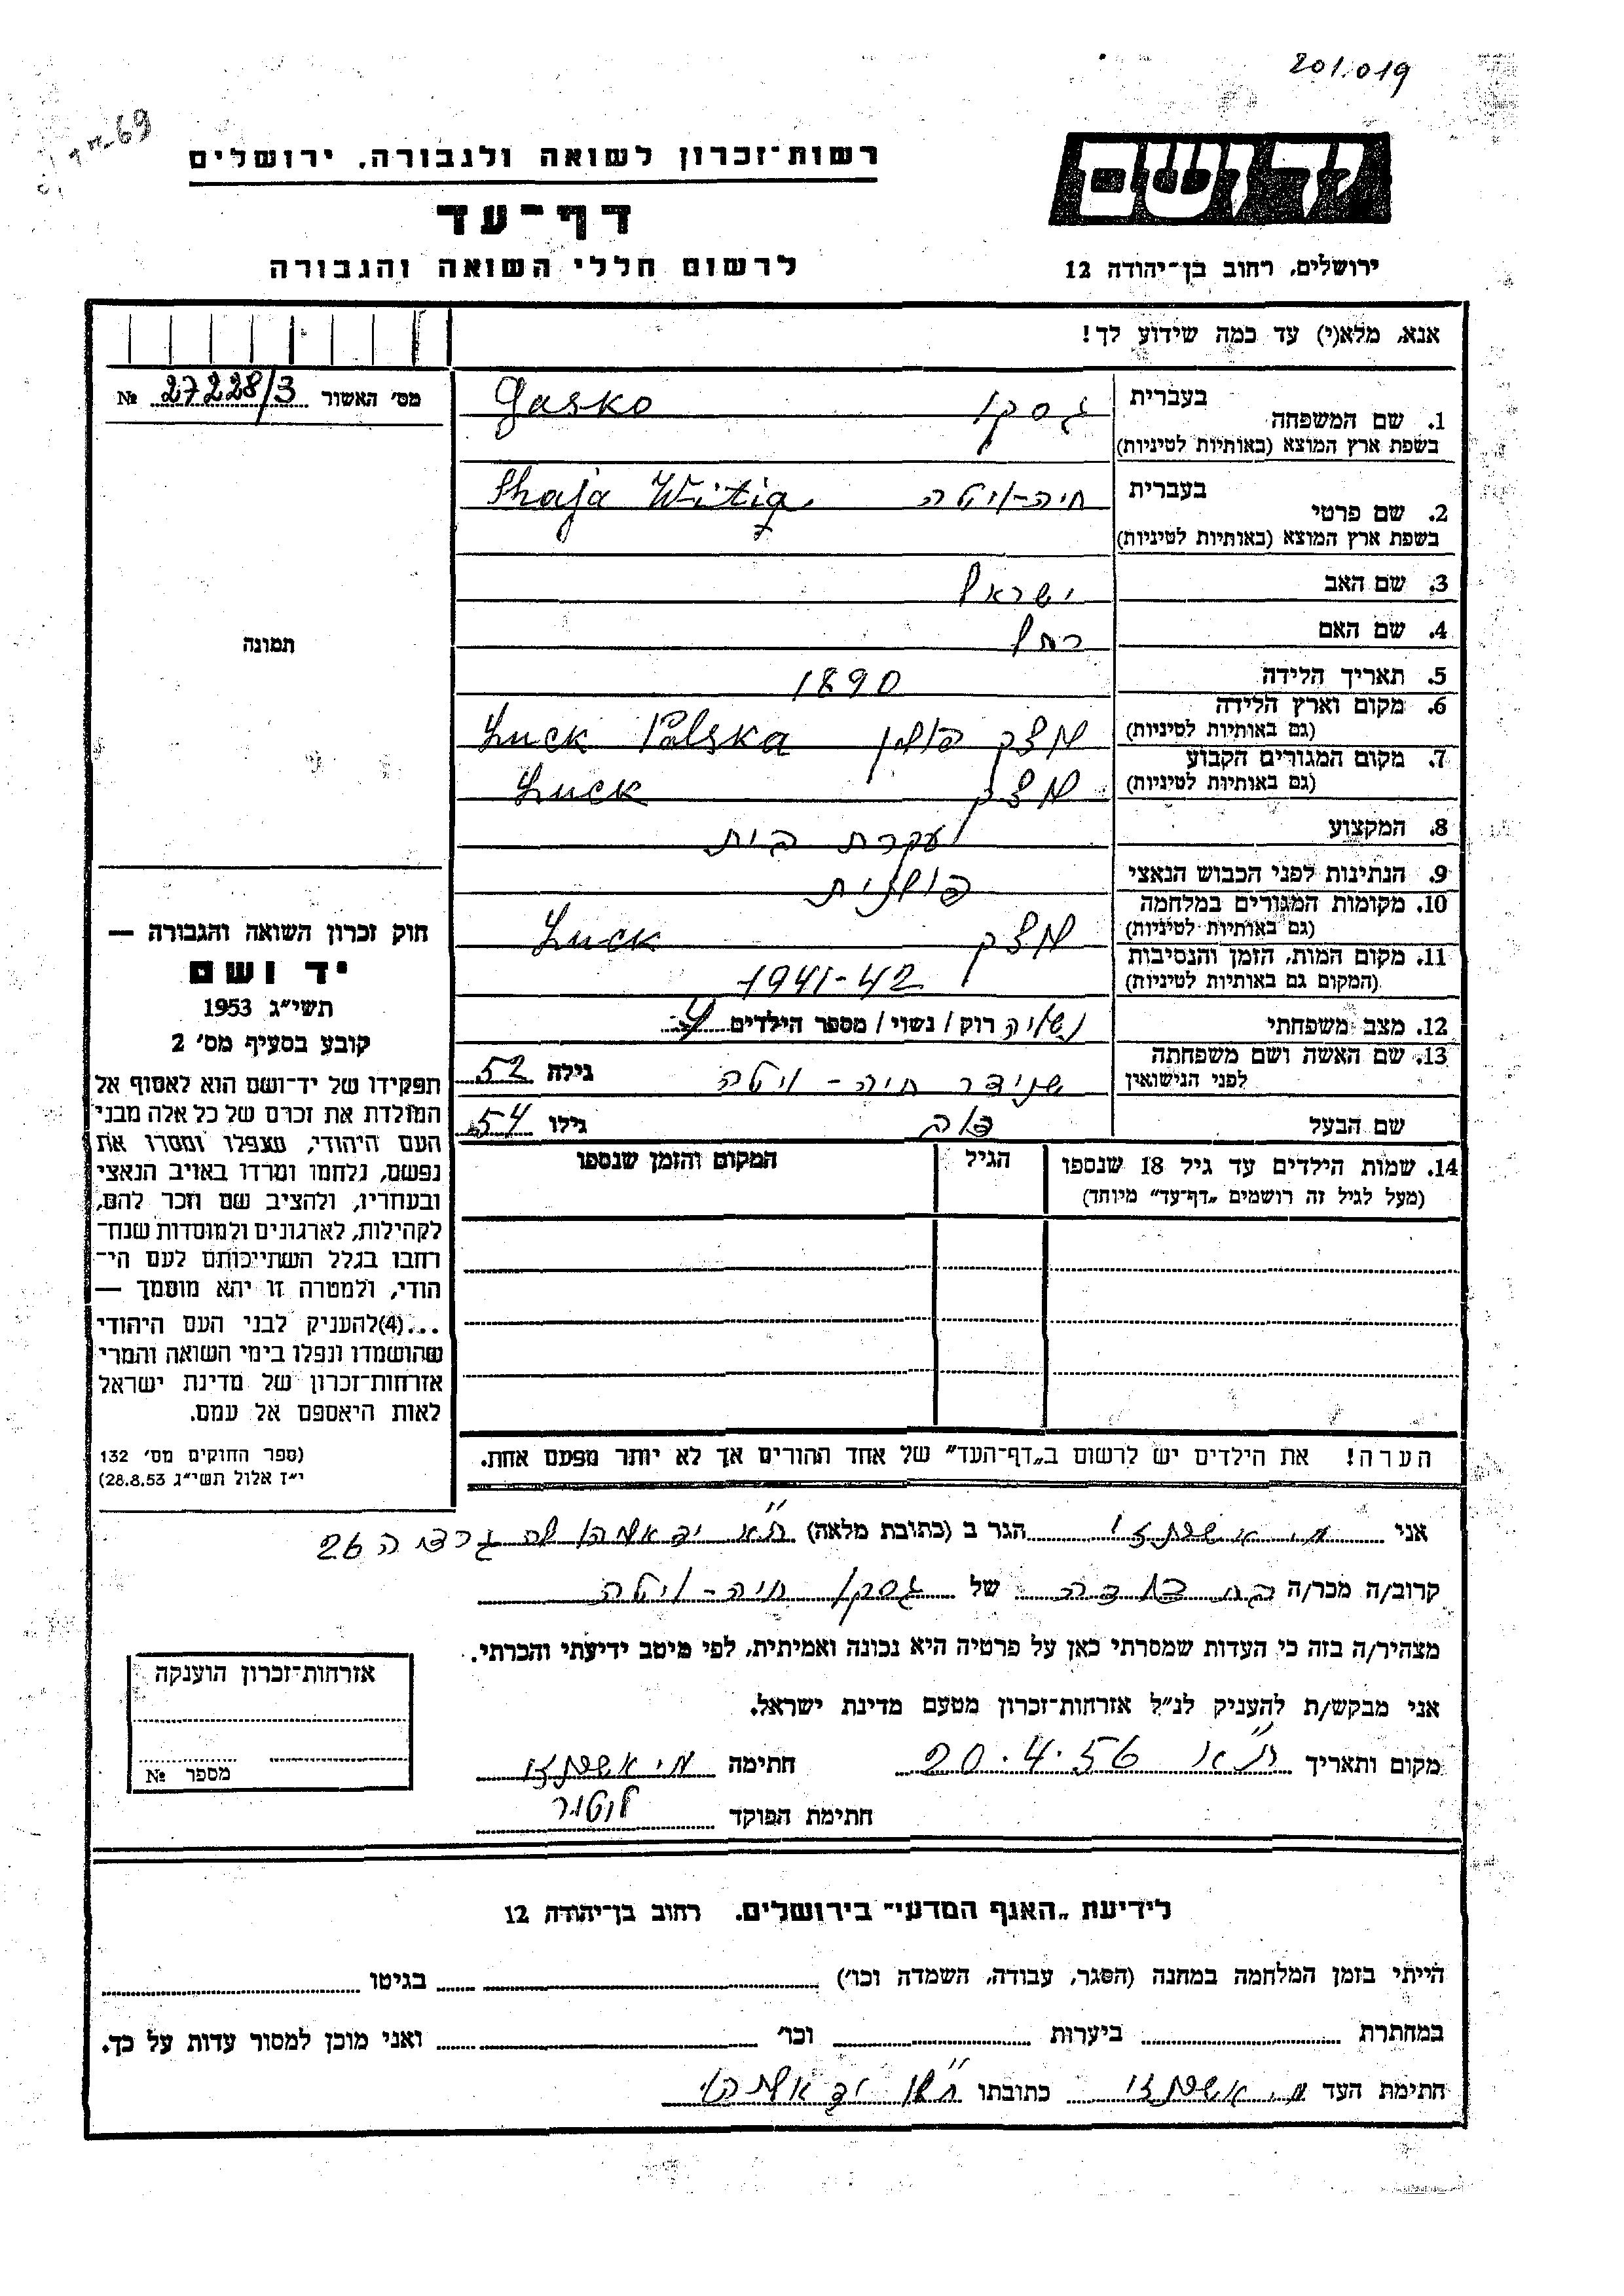 201.019
69
רשות־זכרון לשואה ולגבורה, ירושלים
יד ושם
דף־עד
לרשום חללי השואה והגבורה
ירושלים, רחוב בן־יהודה 12
אנא, מלא(י) עד כמה שידוע לך!
מס' האשור 27228/3 №
1. שם המשפחה בעברית גסקו Gasko
בשפת ארץ המוצא (באותיות לטיניות)
2. שם פרטי בעברית חיה-ויטה Shaja Witia
בשפת ארץ המוצא (באותיות לטיניות)
3. שם האב ישראל
4. שם האם רחל
תמונה
5. תאריך הלידה 1890
6. מקום וארץ הלידה לוצק פולין Luck Polska
(גם באותיות לטיניות)
7. מקום המגורים הקבוע לוצק Luck
(גם באותיות לטיניות)
8. המקצוע עקרת בית
9. הנתינות לפני הכבוש הנאצי פולנית
10. מקומות המגורים במלחמה לוצק Luck
(גם באותיות לטיניות)
11. מקום המות, הזמן והנסיבות 1941-42
(המקום גם באותיות לטיניות)
12. מצב משפחתי נשואה רוק / נשוי / מספר הילדים 4
13. שם האשה ושם משפחתה לפני הנישואין שניידר חיה - ויטה גילה 52
שם הבעל גילו 54
14. שמות הילדים עד גיל 18 שנספו הגיל המקום והזמן שנספו
(מעל לגיל זה רושמים „דף־עד" מיוחד)
חוק זכרון השואה והגבורה —
יד ושם
תשי"ג 1953
קובע בסעיף מס' 2
תפקידו של יד־ושם הוא לאסוף אל
המולדת את זכרם של כל אלה מבני
העם היהודי, שנפלו ומסרו את
נפשם, נלחמו ומרדו באויב הנאצי
ובעוזריו, ולהציב שם וזכר להם,
לקהילות, לארגונים ולמוסדות שנח־
רבו בגלל השתייכותם לעם הי־
הודי, ולמטרה זו יהא מוסמך —
...(4)להעניק לבני העם היהודי
שהושמדו ונפלו בימי השואה והמרי
אזרחות־זכרון של מדינת ישראל
לאות היאספם אל עמם.
(ספר החוקים מס' 132
י"ז אלול תשי"ג 28.8.53)
הערה! את הילדים יש לרשום ב„דף־העד" של אחד ההורים אך לא יותר מפעם אחת.
אני הגר ב (כתובת מלאה) ת"א יד אליהו 26
קרוב/ה מכר/ה של גסקו חיה-ויטה
מצהיר/ה בזה כי העדות שמסרתי כאן על פרטיה היא נכונה ואמיתית, לפי מיטב ידיעתי והכרתי.
אני מבקש/ת להעניק לנ"ל אזרחות־זכרון מטעם מדינת ישראל.
מקום ותאריך ת"א 20.4.56 חתימה
חתימת הפוקד
אזרחות־זכרון הוענקה
מספר №
לידיעת „האגף המדעי" בירושלים, רחוב בן־יהודה 12
הייתי בזמן המלחמה במחנה (הסגר, עבודה, השמדה וכו') בגיטו
במחתרת ביערות וכו' ואני מוכן למסור עדות על כך.
חתימת העד כתובתו יד אליהו